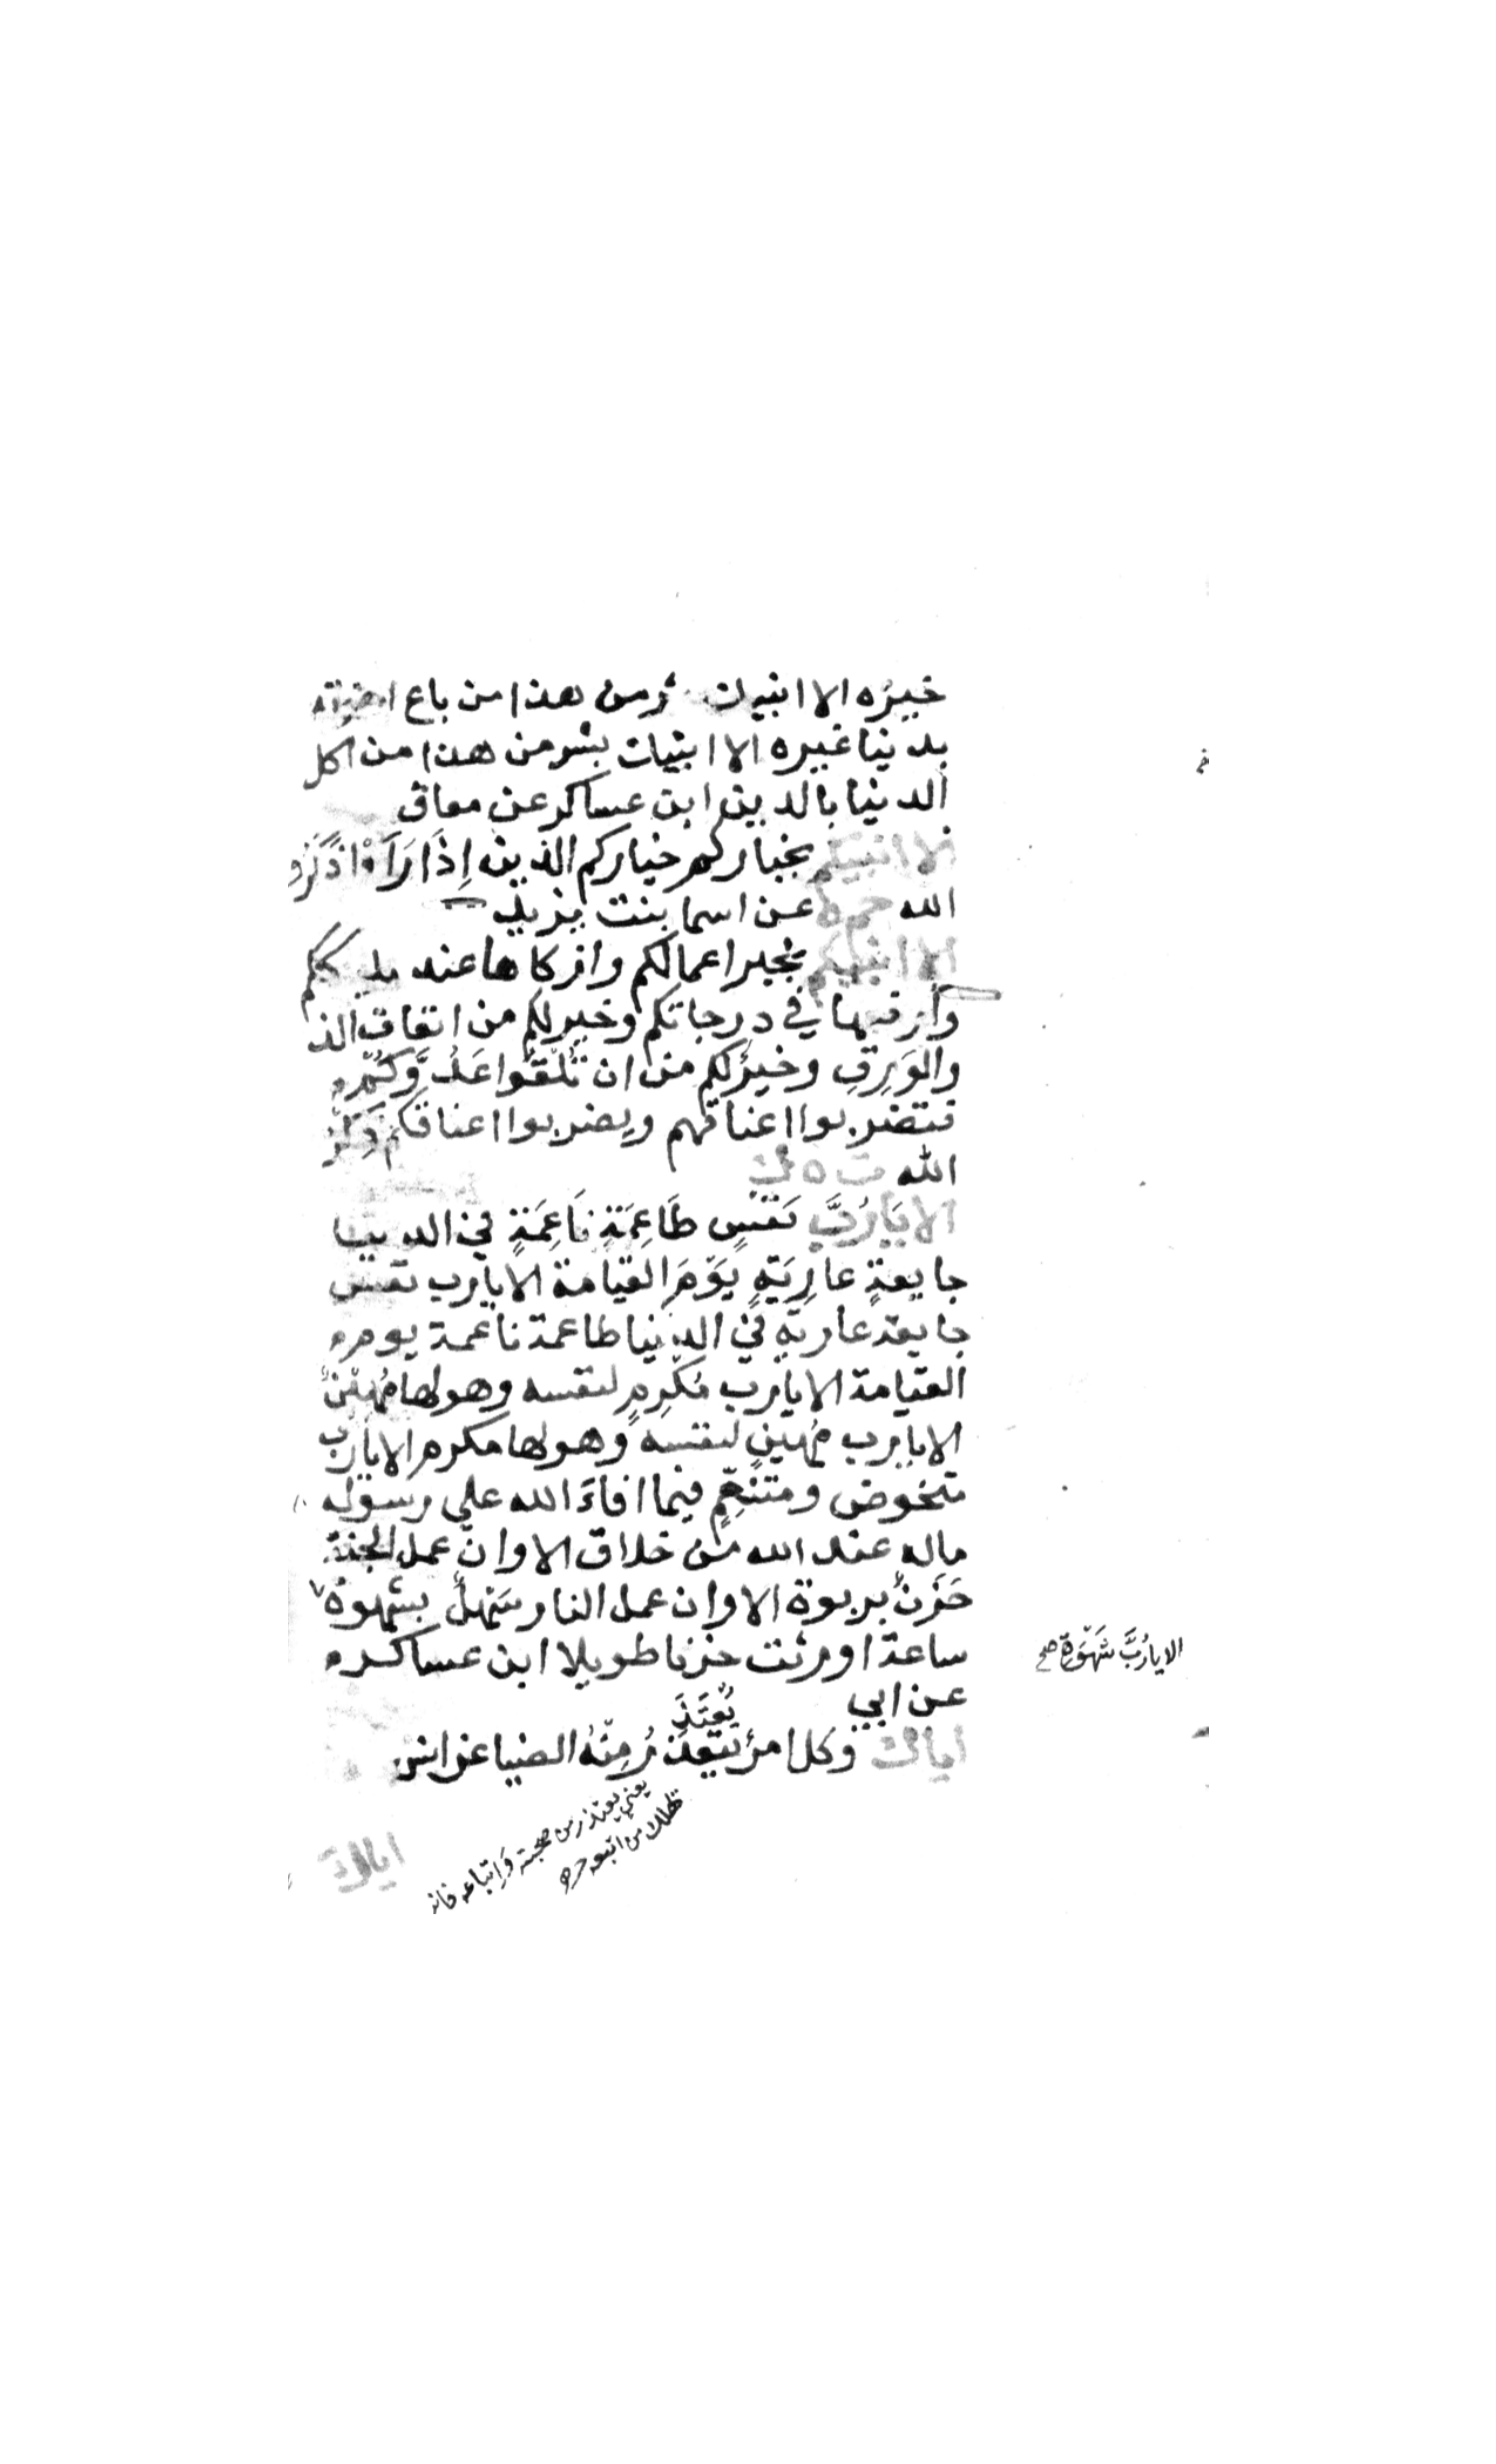 خيره الا انبيك بشر من هذا من باع اخرته
بدنيا غيره الا انبيك بشر من هذا من اكل
الدنيا بالدين ابن عساكر عن معاذ
الا انبيكم بخياركم خياركم الذين إِذَا رَأَوْا ذُكِرَ
الله حم ه عن اسما بنت يزيد
الا انبيكم بخير اعمالكم وازكاها عند مليككم
وارفعها في درجاتكم وخير لكم من انفاق الذهب
والوَرِقِ وخيرٌ لكم من ان تَلْقَوا عَدُوَّكُمْ
فتضربوا اعناقهم ويضربوا اعناقكم ذِكْرُ
الله ت ه ك
الا يَا رُبَّ نَفْسٍ طَاعِمَةٍ نَاعِمَةٍ في الدنيا
جايعةٍ عارِيَةٍ يَوْمَ القيامة الا يا رب نفس
جايعة عارية في الدنيا طاعمة ناعمة يوم
القيامة الا يا رب مُكْرِمٍ لنفسه وهو لها مُهِيْنٌ
الا يا رب مُهِينٍ لنفسه وهو لها مكرم الا يا رب
متخوض ومتنعِّمٍ فيما افاءَ الله علي رسوله
ماله عند الله من خلاق الا وان عمل الجنة
حَزْنٌ بربوة الا وان عمل النار سَهْلٌ بشهوة
ساعة اورثت حزنا طويلا ابن عساكر
الا يا رُبَّ شَهْوَةِ صح
عن ابي
يُعْتَذَ
اياك وكل امر يعتذر مِنْهُ الضيا عن انس
يعني يعتذر من صحبته وَاتباعه فانه
تهلك من اتبعه
اياك